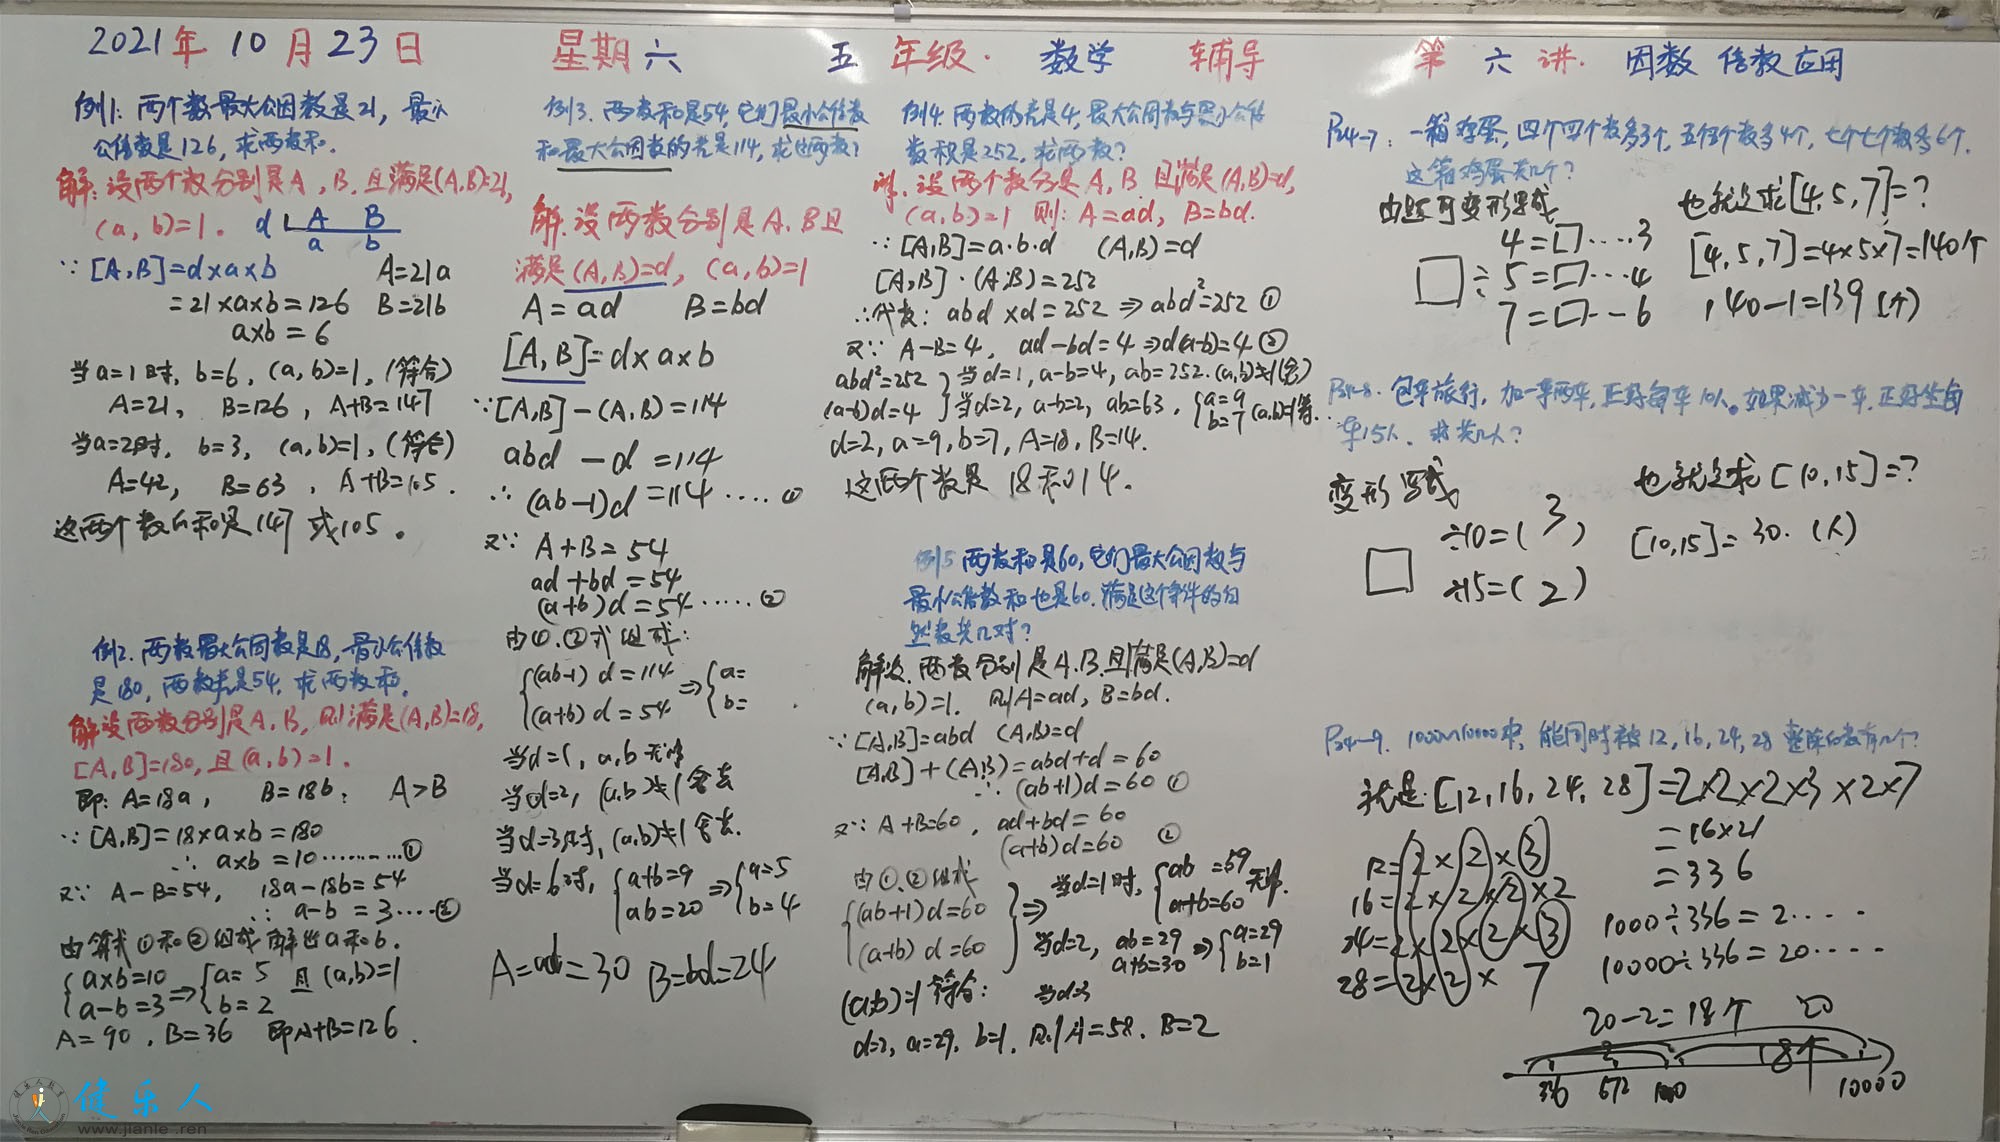 2021年10月23日 星期六 五年级· 数学 辅导 第六讲. 因数 倍数应用
例1: 两个数最大公因数是21, 最小
公倍数是126, 求两数和.
解: 设两个数分别是A, B, 且满足(A,B)=21,
(a, b)=1. d A B
a b
∵ [A,B]=d×a×b A=21a
=21×a×b=126 B=21b
a×b=6
当a=1时, b=6, (a,b)=1, (符合)
A=21, B=126, A+B=147
当a=2时, b=3, (a,b)=1, (符合)
A=42, B=63, A+B=105.
这两个数的和是147或105。
例2. 两数最大公因数是18, 最小公倍数
是180, 两数差是54, 求两数和.
解设两数分别是A, B, 则满足(A,B)=18,
[A,B]=180, 且(a,b)=1.
即: A=18a, B=18b; A>B
∵ [A,B]=18×a×b=180
∴ a×b=10………①
又∵ A-B=54, 18a-18b=54
∴ a-b=3……②
由算式①和②组成解出a和b.
{a×b=10 ⇒ {a=5 且(a,b)=1
{a-b=3 {b=2
A=90, B=36 即A+B=126.
例3. 两数和是54, 它们最小公倍数
和最大公因数的差是114, 求这两数?
解. 设两数分别是A. B且
满足(A,B)=d, (a,b)=1
A=ad B=bd
[A,B]=d×a×b
∵[A,B]-(A,B)=114
abd-d=114
∴ (ab-1)d=114……①
又∵ A+B=54
ad+bd=54
(a+b)d=54……②
由①.②式组成:
{(ab-1)d=114 ⇒ {a=
{(a+b)d=54 {b= .
当d=1, a,b无解
当d=2, (a,b)≠1舍去
当d=3时, (a,b)≠1舍去.
当d=6时, {a+b=9 ⇒ {a=5
{ab=20 {b=4
A=ad=30 B=bd=24
例4. 两数的差是4, 最大公因数与最小公倍
数积是252, 求两数?
解. 设两个数分是A, B 且满足(A,B)=d,
(a,b)=1 则: A=ad, B=bd.
∵ [A,B]=a·b·d (A,B)=d
[A,B]·(A,B)=252
∴代数: abd×d=252 ⇒ abd²=252 ①
又∵ A-B=4, ad-bd=4 ⇒ d(a-b)=4 ②
abd²=252 } 当d=1, a-b=4, ab=252. (a,b)≠1(舍)
(a-b)d=4 } 当d=2, a-b=2, ab=63, {a=9
b=7 (a,b)=1符.
d=2, a=9, b=7, A=18, B=14.
这两个数是18和14.
例5 两数和是60, 它们最大公因数与
最小公倍数和也是60. 满足这个条件的自
然数共几对?
解设. 两数分别是A.B.且满足(A,B)=d
(a,b)=1. 则A=ad, B=bd.
∵ [A,B]=abd (A,B)=d
[A,B]+(A,B)=abd+d=60
∴ (ab+1)d=60 ①
又∵ A+B=60, ad+bd=60
(a+b)d=60 ②
由①、②组成 当d=1时, {ab=59 无解.
{(ab+1)d=60 } ⇒ {a+b=60
{(a+b)d=60 当d=2, ab=29 ⇒ {a=29
a+b=30 {b=1
(a,b)=1符合: 当d=3
d=2, a=29, b=1, 则A=58, B=2
P34-7: 一箱鸡蛋, 四个四个数多3个, 五个五个数多4个, 七个七个数多6个.
这箱鸡蛋共几个?
由题可变形写成 也就是求[4,5,7]=?
4=□……3
□÷5=□……4 [4,5,7]=4×5×7=140个
7=□……6 140-1=139(个)
P34-8. 包车旅行, 加一车两车, 正好每车10人。如果减少一车, 正好坐每
车15人, 求共几人?
变形写成 也就是求[10,15]=?
÷10=(3)
□
÷15=(2) [10,15]=30. (人)
P34-9. 1000~10000中, 能同时被12, 16, 24, 28整除的数有几个?
就是: [12, 16, 24, 28]=2×2×2×3×2×7
=16×21
=336
12=2×2×3
16=2×2×2×2
24=2×2×2×3
28=2×2×7
1000÷336=2……
10000÷336=20……
20-2=18个 20
2 18个
336 672 1000 10000
健乐人
www.jianle.ren